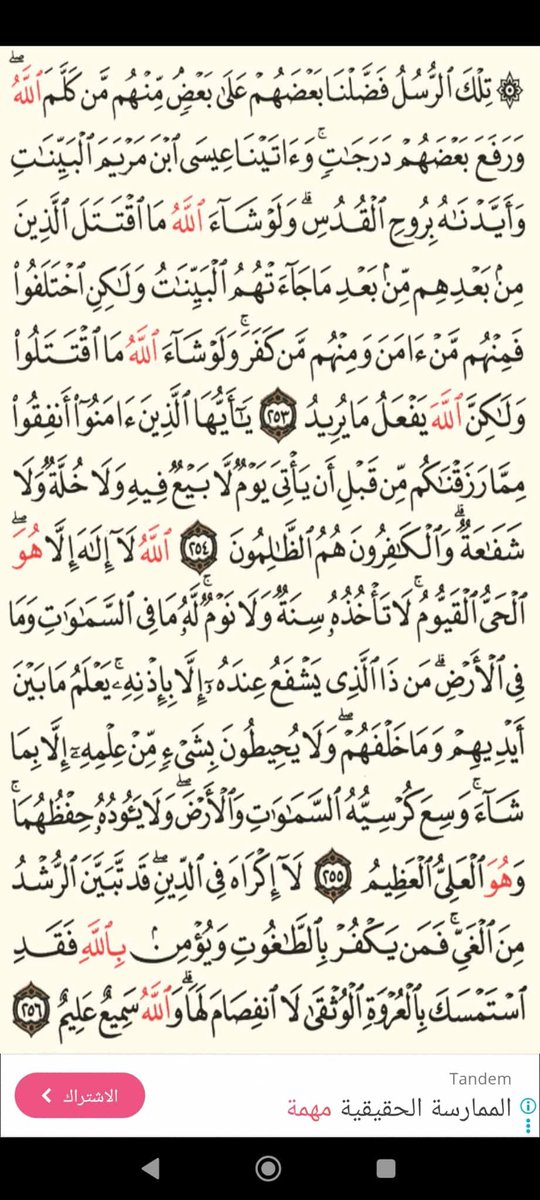 ۞ تِلۡكَ ٱلرُّسُلُ فَضَّلۡنَا بَعۡضَهُمۡ عَلَىٰ بَعۡضٖۘ مِّنۡهُم مَّن كَلَّمَ ٱللَّهُۖ
وَرَفَعَ بَعۡضَهُمۡ دَرَجَٰتٖۚ وَءَاتَيۡنَا عِيسَى ٱبۡنَ مَرۡيَمَ ٱلۡبَيِّنَٰتِ
وَأَيَّدۡنَٰهُ بِرُوحِ ٱلۡقُدُسِۗ وَلَوۡ شَآءَ ٱللَّهُ مَا ٱقۡتَتَلَ ٱلَّذِينَ
مِنۢ بَعۡدِهِم مِّنۢ بَعۡدِ مَا جَآءَتۡهُمُ ٱلۡبَيِّنَٰتُ وَلَٰكِنِ ٱخۡتَلَفُواْ
فَمِنۡهُم مَّنۡ ءَامَنَ وَمِنۡهُم مَّن كَفَرَۚ وَلَوۡ شَآءَ ٱللَّهُ مَا ٱقۡتَتَلُواْ
وَلَٰكِنَّ ٱللَّهَ يَفۡعَلُ مَا يُرِيدُ ٢٥٣ يَٰٓأَيُّهَا ٱلَّذِينَ ءَامَنُوٓاْ أَنفِقُواْ
مِمَّا رَزَقۡنَٰكُم مِّن قَبۡلِ أَن يَأۡتِيَ يَوۡمٞ لَّا بَيۡعٞ فِيهِ وَلَا خُلَّةٞ وَلَا
شَفَٰعَةٞۗ وَٱلۡكَٰفِرُونَ هُمُ ٱلظَّٰلِمُونَ ٢٥٤ ٱللَّهُ لَآ إِلَٰهَ إِلَّا هُوَۖ
ٱلۡحَيُّ ٱلۡقَيُّومُۚ لَا تَأۡخُذُهُۥ سِنَةٞ وَلَا نَوۡمٞۚ لَّهُۥ مَا فِي ٱلسَّمَٰوَٰتِ وَمَا
فِي ٱلۡأَرۡضِۗ مَن ذَا ٱلَّذِي يَشۡفَعُ عِندَهُۥٓ إِلَّا بِإِذۡنِهِۦۚ يَعۡلَمُ مَا بَيۡنَ
أَيۡدِيهِمۡ وَمَا خَلۡفَهُمۡۖ وَلَا يُحِيطُونَ بِشَيۡءٖ مِّنۡ عِلۡمِهِۦٓ إِلَّا بِمَا
شَآءَۚ وَسِعَ كُرۡسِيُّهُ ٱلسَّمَٰوَٰتِ وَٱلۡأَرۡضَۖ وَلَا يَـُٔودُهُۥ حِفۡظُهُمَاۚ
وَهُوَ ٱلۡعَلِيُّ ٱلۡعَظِيمُ ٢٥٥ لَآ إِكۡرَاهَ فِي ٱلدِّينِۖ قَد تَّبَيَّنَ ٱلرُّشۡدُ
مِنَ ٱلۡغَيِّۚ فَمَن يَكۡفُرۡ بِٱلطَّٰغُوتِ وَيُؤۡمِنۢ بِٱللَّهِ فَقَدِ
ٱسۡتَمۡسَكَ بِٱلۡعُرۡوَةِ ٱلۡوُثۡقَىٰ لَا ٱنفِصَامَ لَهَاۗ وَٱللَّهُ سَمِيعٌ عَلِيمٌ ٢٥٦
Tandem
الممارسة الحقيقية مهمة
الاشتراك